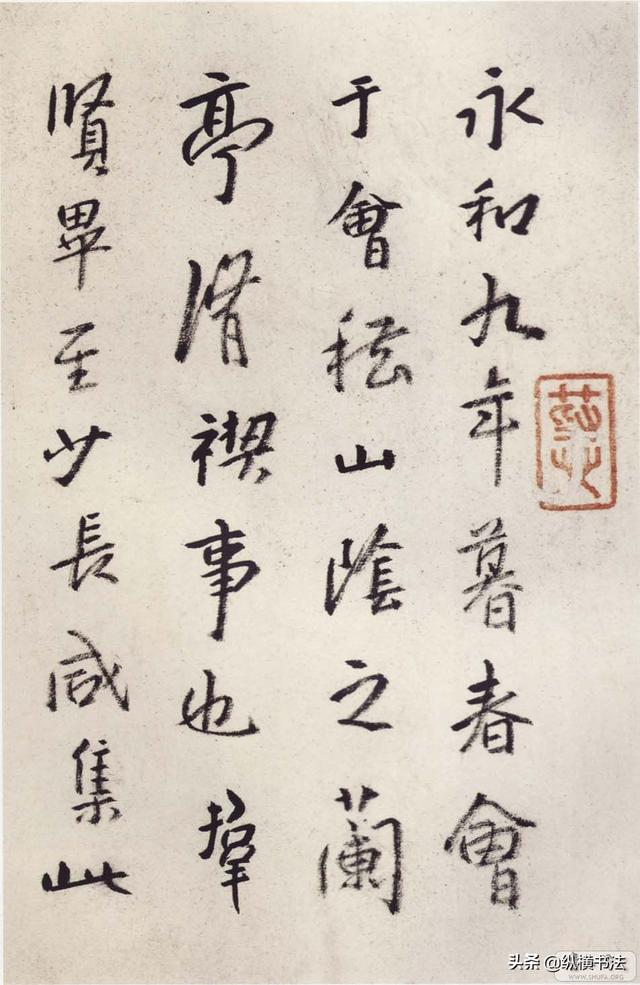 永和九年暮春會
于會嵇山陰之蘭
亭脩禊事也羣
賢畢至少長咸集此
藝
头条 @纵横书法
WWW.SHUFA.ORG